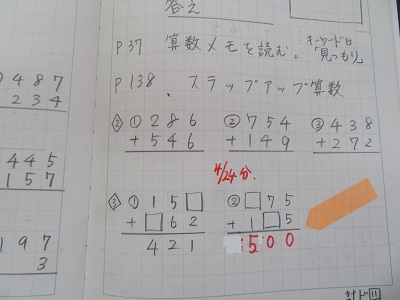 答え
P37 算数メモを読む。キーワードは「見つもり」
P138、ステップアップ算数
487
234
② ① 286
+ 546
② 754
+ 149
③ 438
+ 272
445
157
4/24分
③ ① 15□
+ □62
421
② □75
+ 1□5
500
197
3
計ド⑪